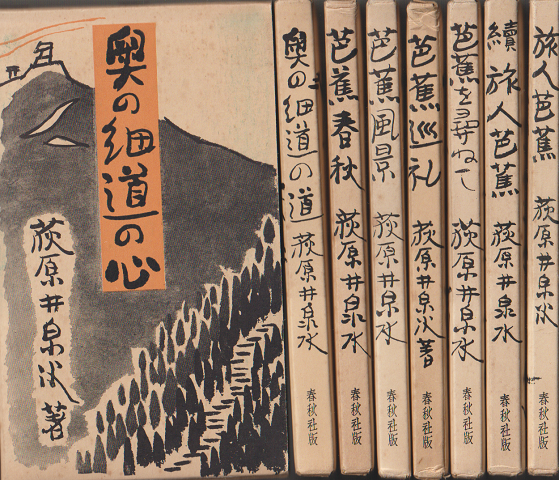 奥の細道の心
荻原井泉水著
奥の細道の道 荻原井泉水 春秋社版
芭蕉春秋 荻原井泉水 春秋社版
芭蕉風景 荻原井泉水 春秋社版
芭蕉巡礼 荻原井泉水著 春秋社版
芭蕉を尋ねて 荻原井泉水 春秋社版
續旅人芭蕉 荻原井泉水 春秋社版
旅人芭蕉 荻原井泉水 春秋社版